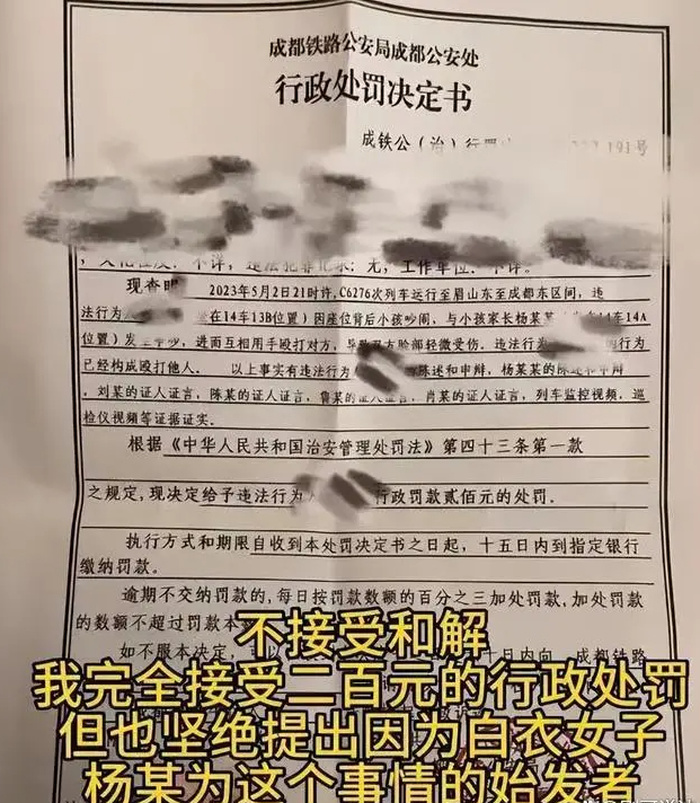 成都铁路公安局成都公安处
行政处罚决定书
成铁公(治)行罚 191号
不详, 违法犯罪记录: 无, 工作单位: 不详。
现查明 2023年5月2日21时许, C6276次列车运行至眉山东至成都东区间, 违
法行为 坐在14车13B位置) 因座位背后小孩吵闹, 与小孩家长杨某某 14车14A
位置) 发生争吵, 进而互相用手殴打对方, 导致双方脸部轻微受伤. 违法行为 的行为
已经构成殴打他人. 以上事实有违法行为 陈述和申辩, 杨某某的陈述和申辩
, 刘某的证人证言, 陈某的证人证言, 鲁某的证人证言, 肖某的证人证言, 列车监控视频, 巡
检仪视频等证据证实.
根据《中华人民共和国治安管理处罚法》第四十三条第一款
之规定, 现决定给予违法行为 行政罚款贰佰元的处罚.
执行方式和期限自收到本处罚决定书之日起, 十五日内到指定银行
缴纳罚款。
逾期不交纳罚款的, 每日按罚款数额的百分之三加处罚款, 加处罚款
的数额不超过罚款本
如不服本决定, 十日内向 成都铁路
不接受和解
我完全接受二百元的行政处罚
但也坚绝提出因为白衣女子
杨某为这个事情的始发者